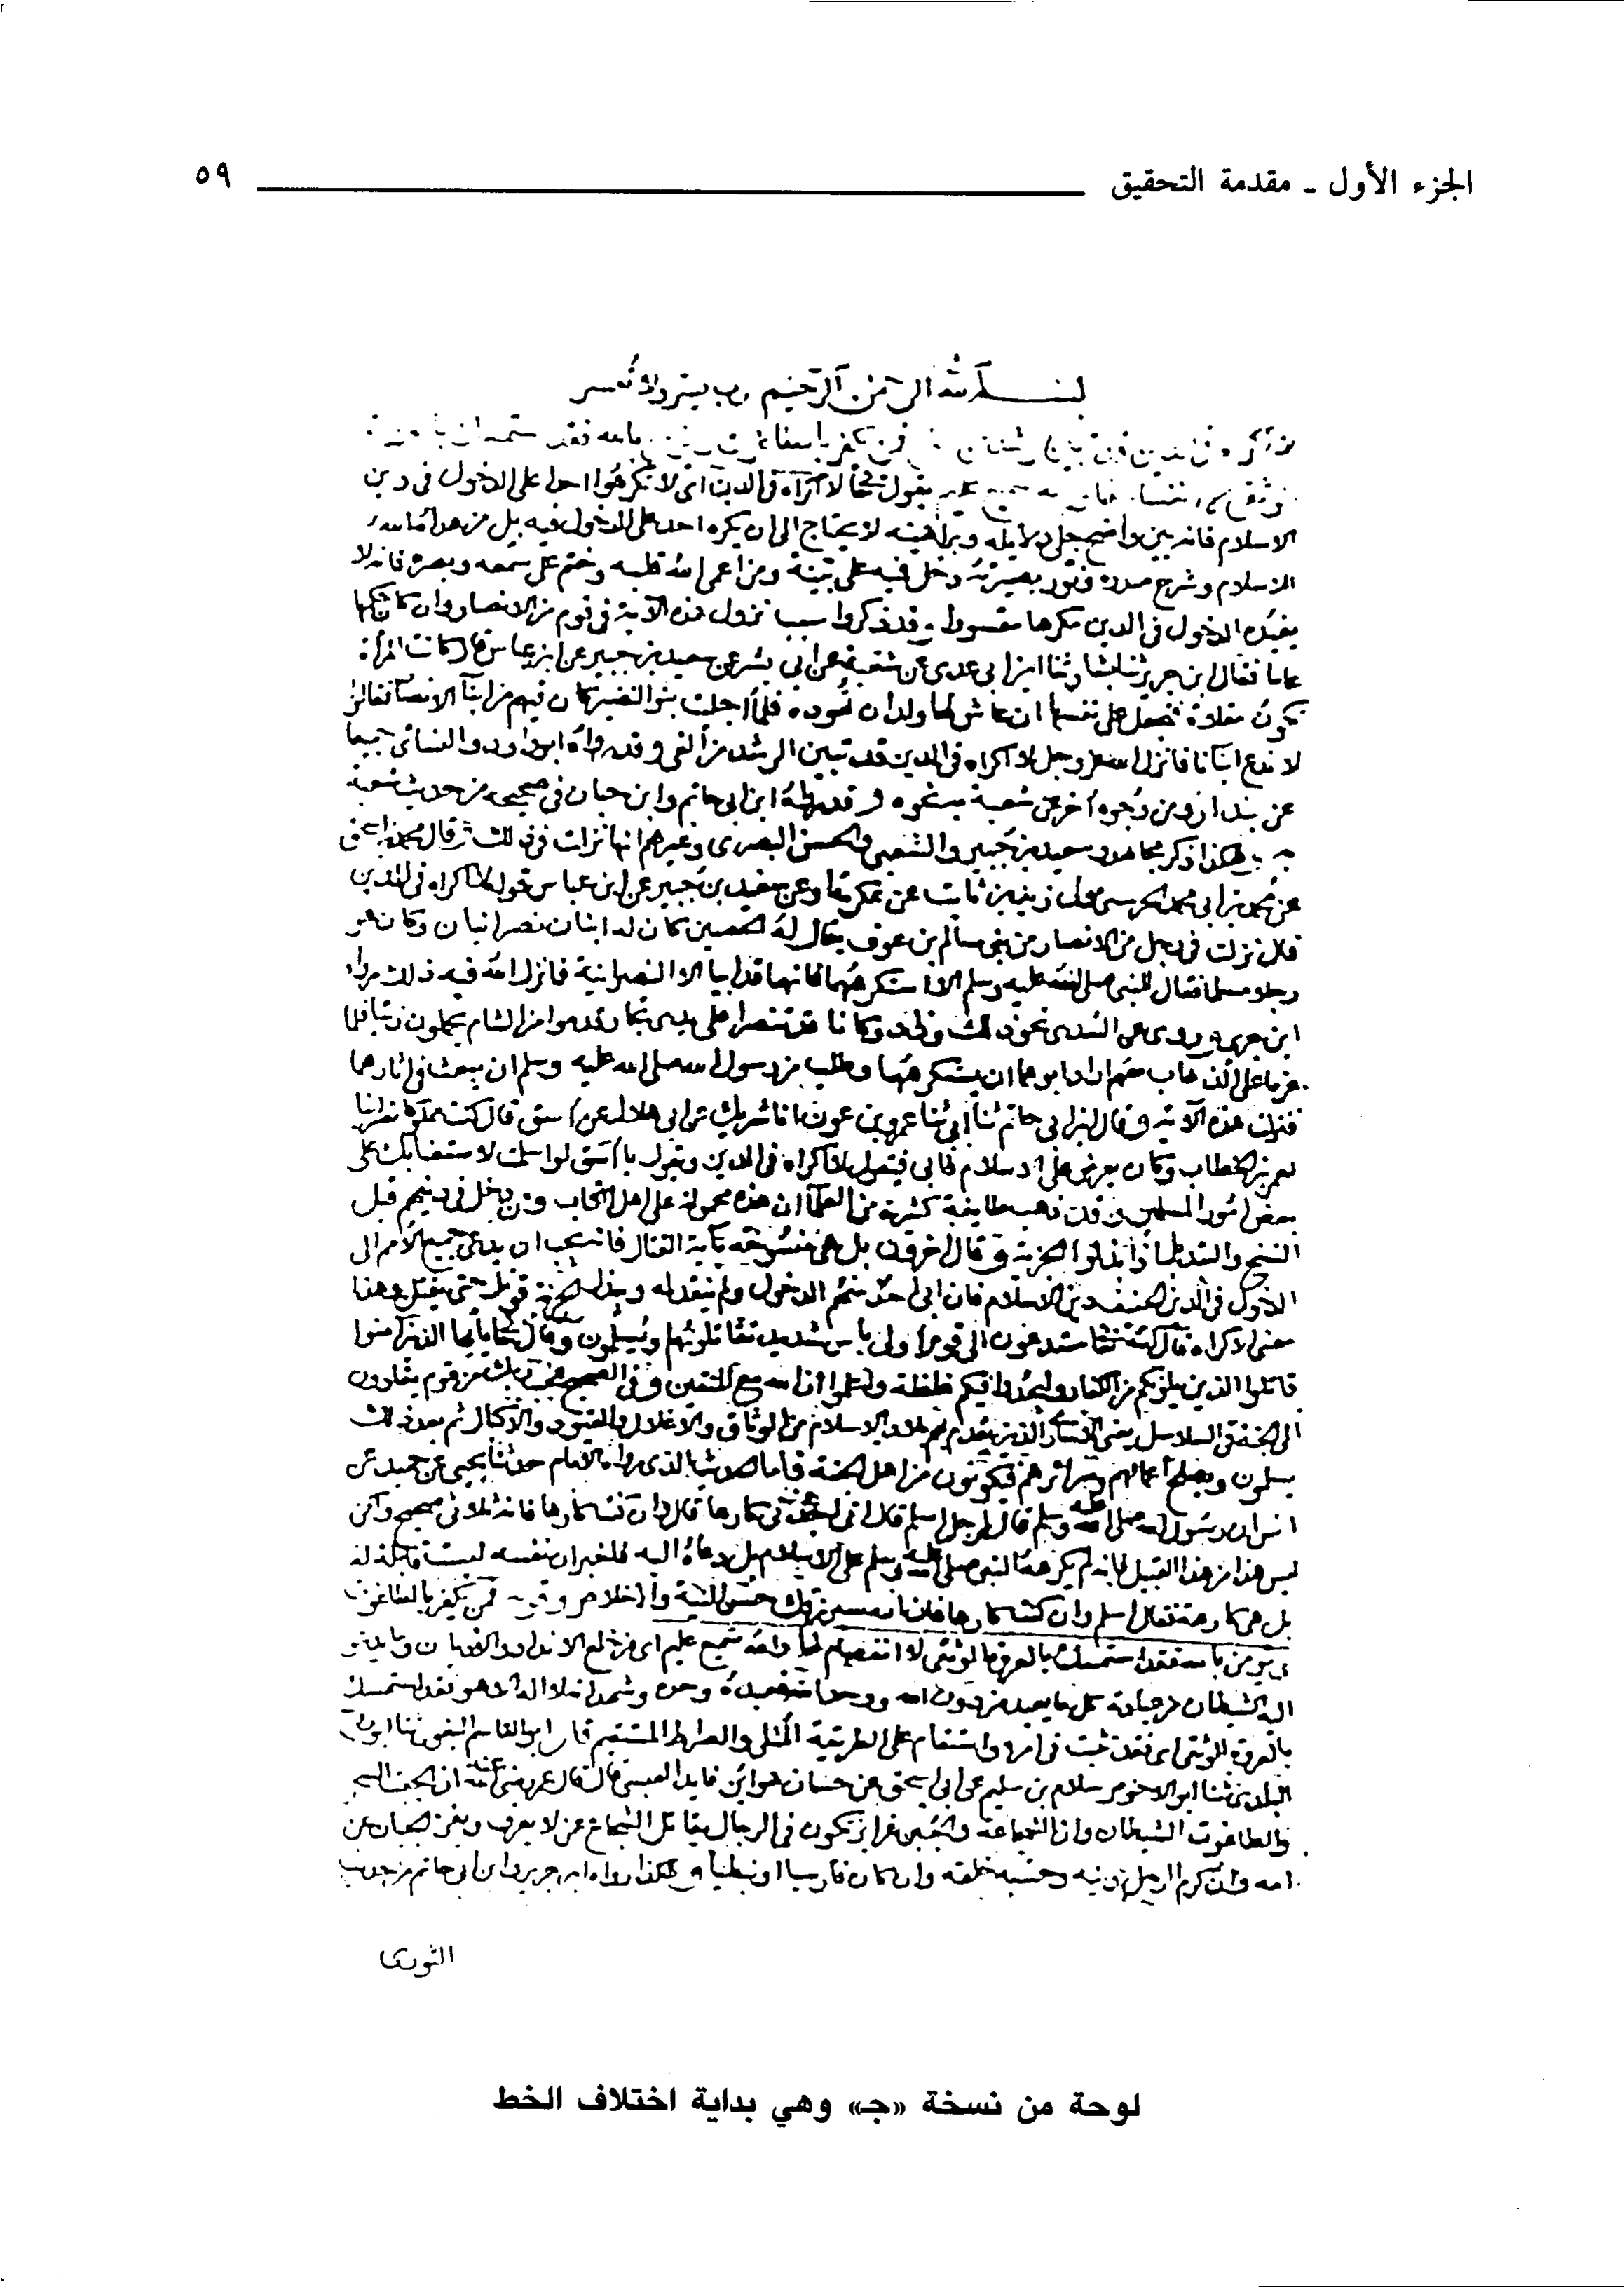 الجزء الأول ـ مقدمة التحقيق ٥٩
بسم الله الرحمن الرحيم رب يسر ولا تعسر
لا اكراه في الدين قد تبين الرشد من الغي فمن يكفر بالطاغوت ويؤمن بالله فقد استمسك بالعروة
الوثقى لا انفصام لها والله سميع عليم يقول تعالى لا اكراه في الدين اى لا تكرهوا احدا على الدخول في دين
الاسلام فانه بين واضح جلى دلايله وبراهينه لا يحتاج الى ان يكره احد على الدخول فيه بل من هداه الله
الاسلام وشرح صدره ونور بصيرته دخل فيه على بينة ومن اعمى الله قلبه وختم على سمعه وبصره فانه لا
يفيده الدخول في الدين مكرها مقسورا وقد ذكروا سبب نزول هذه الآية في قوم من الانصار وان كان حكمها
عاما فقال ابن جرير ثنا ابن بشار ثنا ابن ابى عدى عن شعبة عن ابى بشر عن سعيد بن جبير عن ابن عباس قال كانت المرأة
تكون مقلاة فتجعل على نفسها ان عاش لها ولد ان تهوده فلما اجليت بنو النضير كان فيهم من ابنآ الانصار فقالوا
لا ندع ابنآنا فانزل الله عز وجل لا اكراه في الدين قد تبين الرشد من الغى وقد رواه ابو داود والنسائى جميعا
عن بندار ومن وجوه أخر عن شعبة به نحوه وقد رواه ابن ابى حاتم وابن حبان في صحيحه من حديث شعبة
به وهكذا ذكر مجاهد وسعيد بن جبير والشعبى والحسن البصرى وغيرهم انها نزلت في ذلك وقال محمد بن اسحق
عن محمد بن ابى محمد الحرسى مولى زيد بن ثابت عن عكرمة او عن سعيد بن جبير عن ابن عباس قوله لا اكراه في الدين
قال نزلت في رجل من الانصار من بنى سالم بن عوف يقال له الحصين كان له ابنان نصرانيان وكان هو
رجلا مسلما فقال للنبى صلى الله عليه وسلم الا استكرههما فانهما قد ابيا الا النصرانية فانزل الله فيه ذلك رواه
ابن جرير وروى عن السدى نحو ذلك وزاد وكانا قد تنصرا على يدى تجار قدموا من الشام يحملون زيتا فلما
عزما على الذهاب معهم اراد ابوهما ان يستكرههما وطلب من رسول الله صلى الله عليه وسلم ان يبعث في اثارهما
فنزلت هذه الآية وقال ابن ابى حاتم ثنا ابى ثنا عمرو بن عون انا شريك عن ابى هلال عن اسق قال كنت مملوكا نصرانيا
لعمر بن الخطاب وكان يعرض على الاسلام فآبى فيقول لا اكراه في الدين ويقول يا اسق لو اسلمت لاستعنا بك على
بعض امور المسلمين وقد ذهب طايفة كثيرة من العلمآ ان هذه محمولة على اهل الكتاب ومن دخل في دينهم قبل
النسخ والتبديل اذا بذلوا الجزية وقال اخرون بل هى منسوخة بآية القتال فانه يجب ان يدعى جميع الأمم الى
الدخول في الدين الحنيف دين الاسلام فان ابى احد منهم الدخول ولم ينقد له ويبذل الجزية قوتل حتى يقتل وهذا
معنى الاكراه قال الله تعالى ستدعون الى قوم اولى باس شديد تقاتلونهم او يسلمون وقال تعالى يا ايها الذين آمنوا
قاتلوا الذين يلونكم من الكفار وليجدوا فيكم غلظة واعلموا ان الله مع المتقين وفى الصحيح عجب ربك من قوم يقادون
الى الجنة في السلاسل يعنى الاسارى الذين يقدم بهم بلاد الاسلام في الوثاق والاغلال والقيود والاكبال ثم بعد ذلك
يسلمون ويصلح اعمالهم وسرائرهم فيكونون من اهل الجنة فاما الحديث الذى رواه الامام حدثنا يحيى عن حميد عن
انس ان رسول الله صلى الله عليه وسلم قال لرجل اسلم قال انى اجدنى كارها قال وان كنت كارها فانه ثلاثى صحيح ولكن
ليس هذا من هذا القبيل فانه لم يكرهه النبى صلى الله عليه وسلم على الاسلام بل دعاه اليه فاخبر ان نفسه ليست قابلة له
بل هى كارهة فقال اسلم وان كنت كارها فان الله سيرزقك حسن النية والاخلاص وقوله فمن يكفر بالطاغوت
ويؤمن بالله فقد استمسك بالعروة الوثقى لا انفصام لها والله سميع عليم اى من خلع الانداد والاوثان وما يدعو
اليه الشيطان من عبادة كل ما يعبد من دون الله ووحد الله فعبده وحده وشهد ان لا اله الا هو فقد استمسك
بالعروة الوثقى اى فقد ثبت في امره واستقام على الطريقة المثلى والصراط المستقيم قال ابو القاسم البغوى ثنا ابو روح
البلدى ثنا ابو الاحوص سلام بن سليم عن ابى اسحق عن حسان هو ابن فايد العبسى قال قال عمر رضى الله عنه ان الجبت السحر
والطاغوت الشيطان وان الشجاعة والجبن غرايز تكون في الرجال يقاتل الشجاع عن من لا يعرف ويفر الجبان عن
امه وان كرم الرجل دينه وحسبه خلقه وان كان فارسيا او نبطيا وهكذا رواه ابن جرير وابن ابى حاتم من حديث
الثورى
لوحة من نسخة «جـ» وهي بداية اختلاف الخط